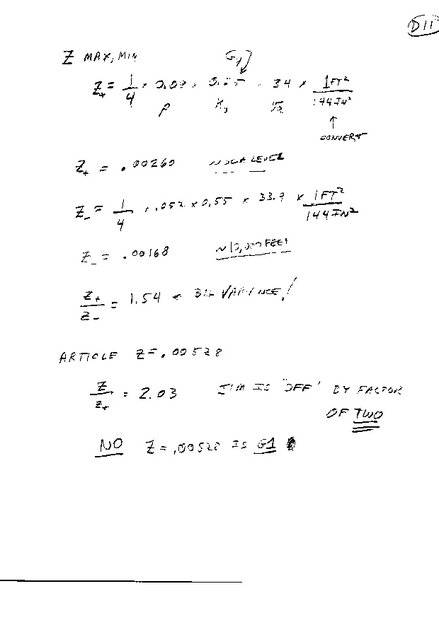 D11
Z MAX, MIN
G1
Z+ = 1/4 × 0.08 × 0.55 × 34 × 1FT²/144IN²
ρ
CONVERT
Z+ = .00260 ~ SEA LEVEL
Z- = 1/4 × .052 × 0.55 × 33.9 × 1FT²/144IN²
Z- = .00168 ~10,000 FEET
Z+/Z- = 1.54 VARIANCE!
ARTICLE Z = .00528
Z/Z+ = 2.03 JIM IS "OFF" BY FACTOR
OF TWO
NO Z = .00528 IS G1